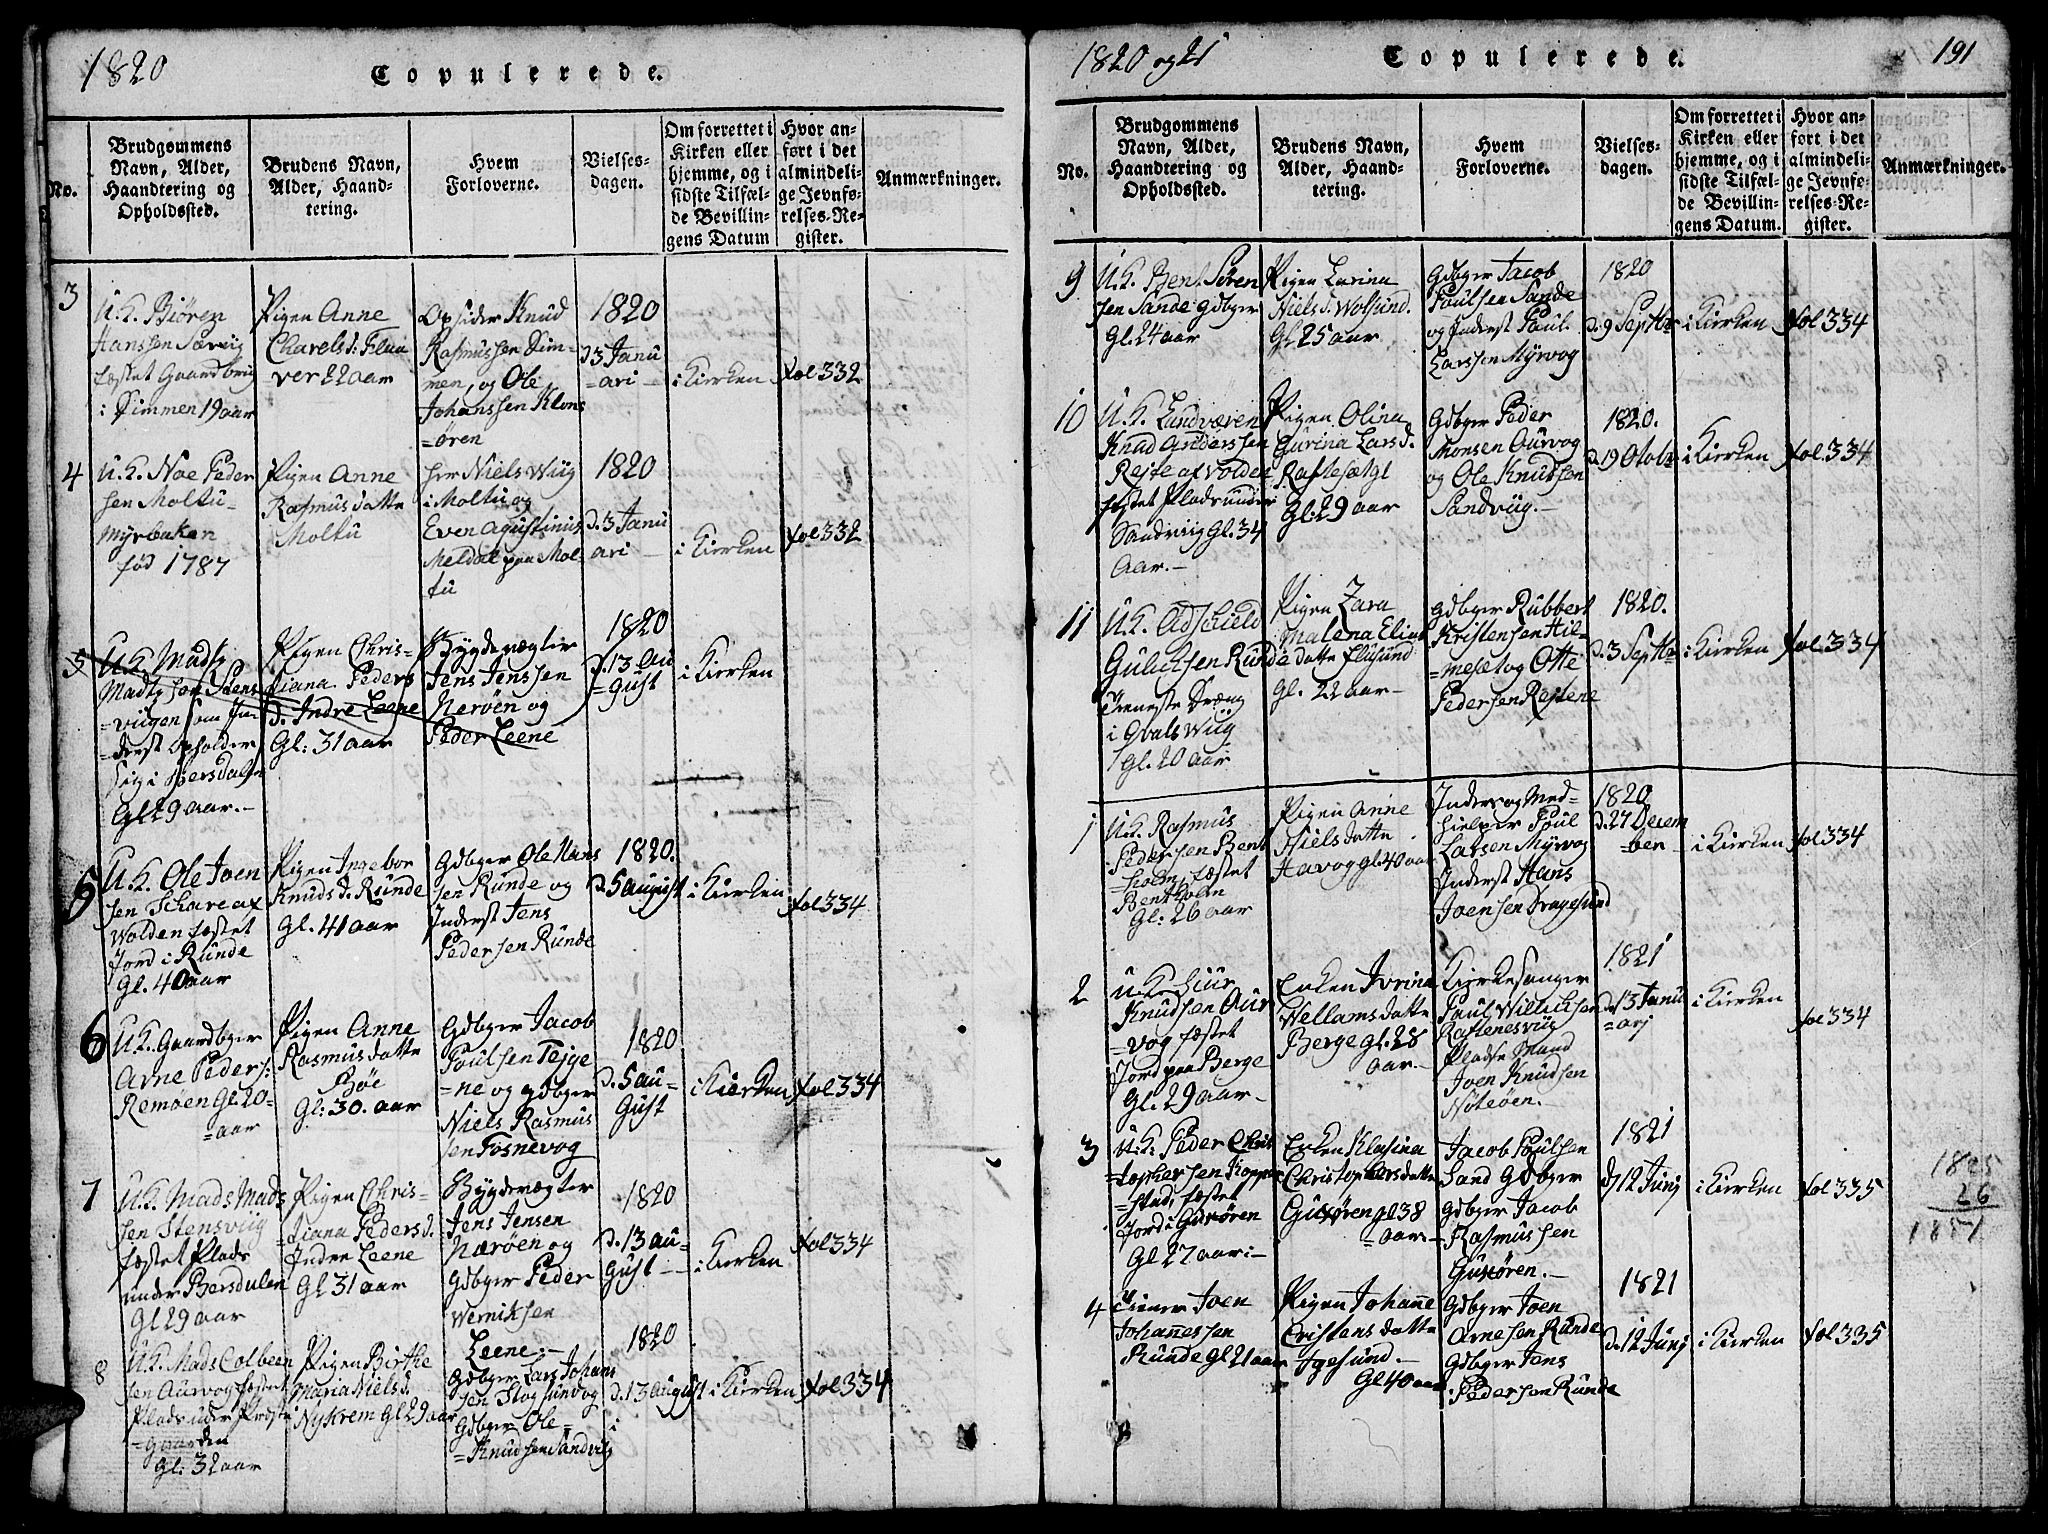 1820
Copulerede.
No.
Brudgommens
Navn, Alder,
Haandtering og
Opholdssted.
Brudens Navn,
Alder, Haand-
tering.
Hvem
Forloverne.
Vielses-
dagen.
Om forrettet i
Kirken eller
hjemme, og i
sidste Tilfæl-
de Bevillin-
gens Datum
Hvor an-
ført i det
almindeli-
ge Jevnfø-
relses-Re-
gister.
Anmærkninger.
3
U.K. Biøren
Hanssen
fæstet
i Dimmen 19 aar
Pigen Anne
Charels d. Flaa
ver 22 aar
Opsider Knud
Rasmussen Dim-
men, og Ole
Johanssen Klons
=øren
1820
d. 3 Janu
=ari
i Kirken
fol 332
4
U.K. Noe Peder
sen Moltu
Myrbaken
fød 1787
Pigen Anne
Rasmusdatte
Moltu
Hr Niels Wiig
i Moltu og
Even Agustinus
Meldal paa Mol-
tu
1820
d. 3 Janu
ari
i Kirken
fol 332
5
U.K. Mads
Madssen Stens
=viigen som In
=derst opholder
sig i Bersdalen
Gl 29 aar.-
Pigen Chris-
tiana Peders
d. Indre Leene
Gl: 31 aar
Bygdevægter
Jens Jenssen
Nerøen og
Peder Leene
1820
d. 13 Au
=gust
i Kirken
5
U.K. Ole Joen
sen
Wolden fæstet
Jord i Runde
Gl. 40 aar
Pigen Ingebor
Knuds d. Runde
Gl. 41 aar
Gdbger Ole Hans
sen Runde og
Inderst Jens
Pedersen Runde
1820.
d. 5 august
i Kirken
fol 334
6
U.K. Gaardbger
Arne Peders:
Remøen Gl 20-
=aar
Pigen Anne
Rasmusdatte
Bøe
Gl: 30. aar
Gdbger Jacob
Poulsen Teige
=ne og gdbger
Niels Rasmus
sen Fosnevog
1820
d. 5 au-
Gust
i Kirken
fol 334
7
U.K. Mads Mads
sen Stensviig
fæstet Plads
under Bersdalen
Gl 29 aar
Pigen Chris-
tiana Peders d.
Indre Leene
Gl 31 aar
Bygdevægter
Jens Jensen
Nærøen og
Gdbger Peder
Werniksen
Leene.-
1820
d. 13 au-
Gust
i Kirken
fol 334
8
U.K. Mads Colbeen
sen Aurvog fæstet
Plads uder Præste
=gaarden
Gl: 32 aar
Pigen Birthe
Maria Niels d.
Nykrem Gl 29 aar
Gdbger Lars Johans
sen og
Gdbger Ole
=Knudsen Sandviig
1820
d. 13 august
i Kirken
fol 334
1820 og 21
Copulerede.
191
No.
Brudgommens
Navn, Alder,
Haandtering og
Opholdssted.
Brudens Navn,
Alder, Haand-
tering.
Hvem
Forloverne.
Vielses-
dagen.
Om forrettet i
Kirken eller
hjemme, og i
sidste Tilfæl-
de Bevillin-
gens Datum.
Hvor an-
ført i det
almindeli-
ge Jevnfø-
relses-Re-
gister.
Anmærkninger.
9
U.K. Bent Søren
sen Sande Gdbger
Gl. 24 aar
Pigen Larina
Niels d. Wolsund.
Gl 25 aar
Gdbger Jacob
Poulsen Sande
og Inderst Paul
Larssen Myrvog
1820
d. 9 Septbr
i Kirken
fol 334
10
U.K. Landværen
Knud Anderssen
Reite af Volden
fæstet Plads under
Sandviig Gl. 34
Aar.-
Pigen Olina
Gurina Lars d.
Gl: 29 aar
Gdbger Peder
Monsen Aurvog
og Ole Knudsen
Sandviig.-
1820.
d. 19 Otobr
i Kirken
fol 334
11
U.K. Adschield
Gulichsen Runde
Dræng
i
Gl. 20 aar
Pigen Zara
Malena Elias
datte Elusund
Gl. 22 aar-
Gdbger Rubbert
Kristensen Hil-
=meset og Otte
Pedersen Reitene
1820.
d. 3 Septbr
i Kirken
fol 334
1
U.K. Rasmus
Pedersen Bent
=holm, fæstet
Bentholm
Gl: 26 aar
Pigen Anne
Nielsdatte
Havog gl 40 aar
Inders og Med-
hielper Poul
Larsen Myrvog
Inderst Hans
Joensen Dragesund
1820
d. 27 Decem
=ber
i Kirken
fol 334
2
U.K. Siur
Knudsen Aur
=vog fæstet
Jord paa Berge
Gl. 29 aar-
Enken Ivrina
Wellamsdatte
Berge gl. 28
aar-
Kirkesanger
Paul Willichsen
Raftenesviig
Pladse Mand
Joen Knudsen
Nøteøen.
1821
d. 13 Janu
=arj
i Kirken
fol 334
3
U.K. Peder Chris
=tophersen Kopper
=stad, fæstet
Jord i Gusøren
Gl 27 aar:-
Enken Klasina
Christophersdatte
Gusøren gl 38
=aar-
Jacob Poulsen
Sand Gdbger
Gdbger Jacob
Rasmussen
Gusøren.-
1821
d 12 Junj
i Kirken
fol 335
1825
26
1851
4
Joen
Johannessen
Runde Gl 21 aar
Pigen Johanne
Cristensdatte
Igesund.-
Gl 40 aar
Gdbger Joen
Arnesen Runde
Gdbger Jens
Pedersen Runde
1821
d. 12 Junj
i Kirken
fol 335